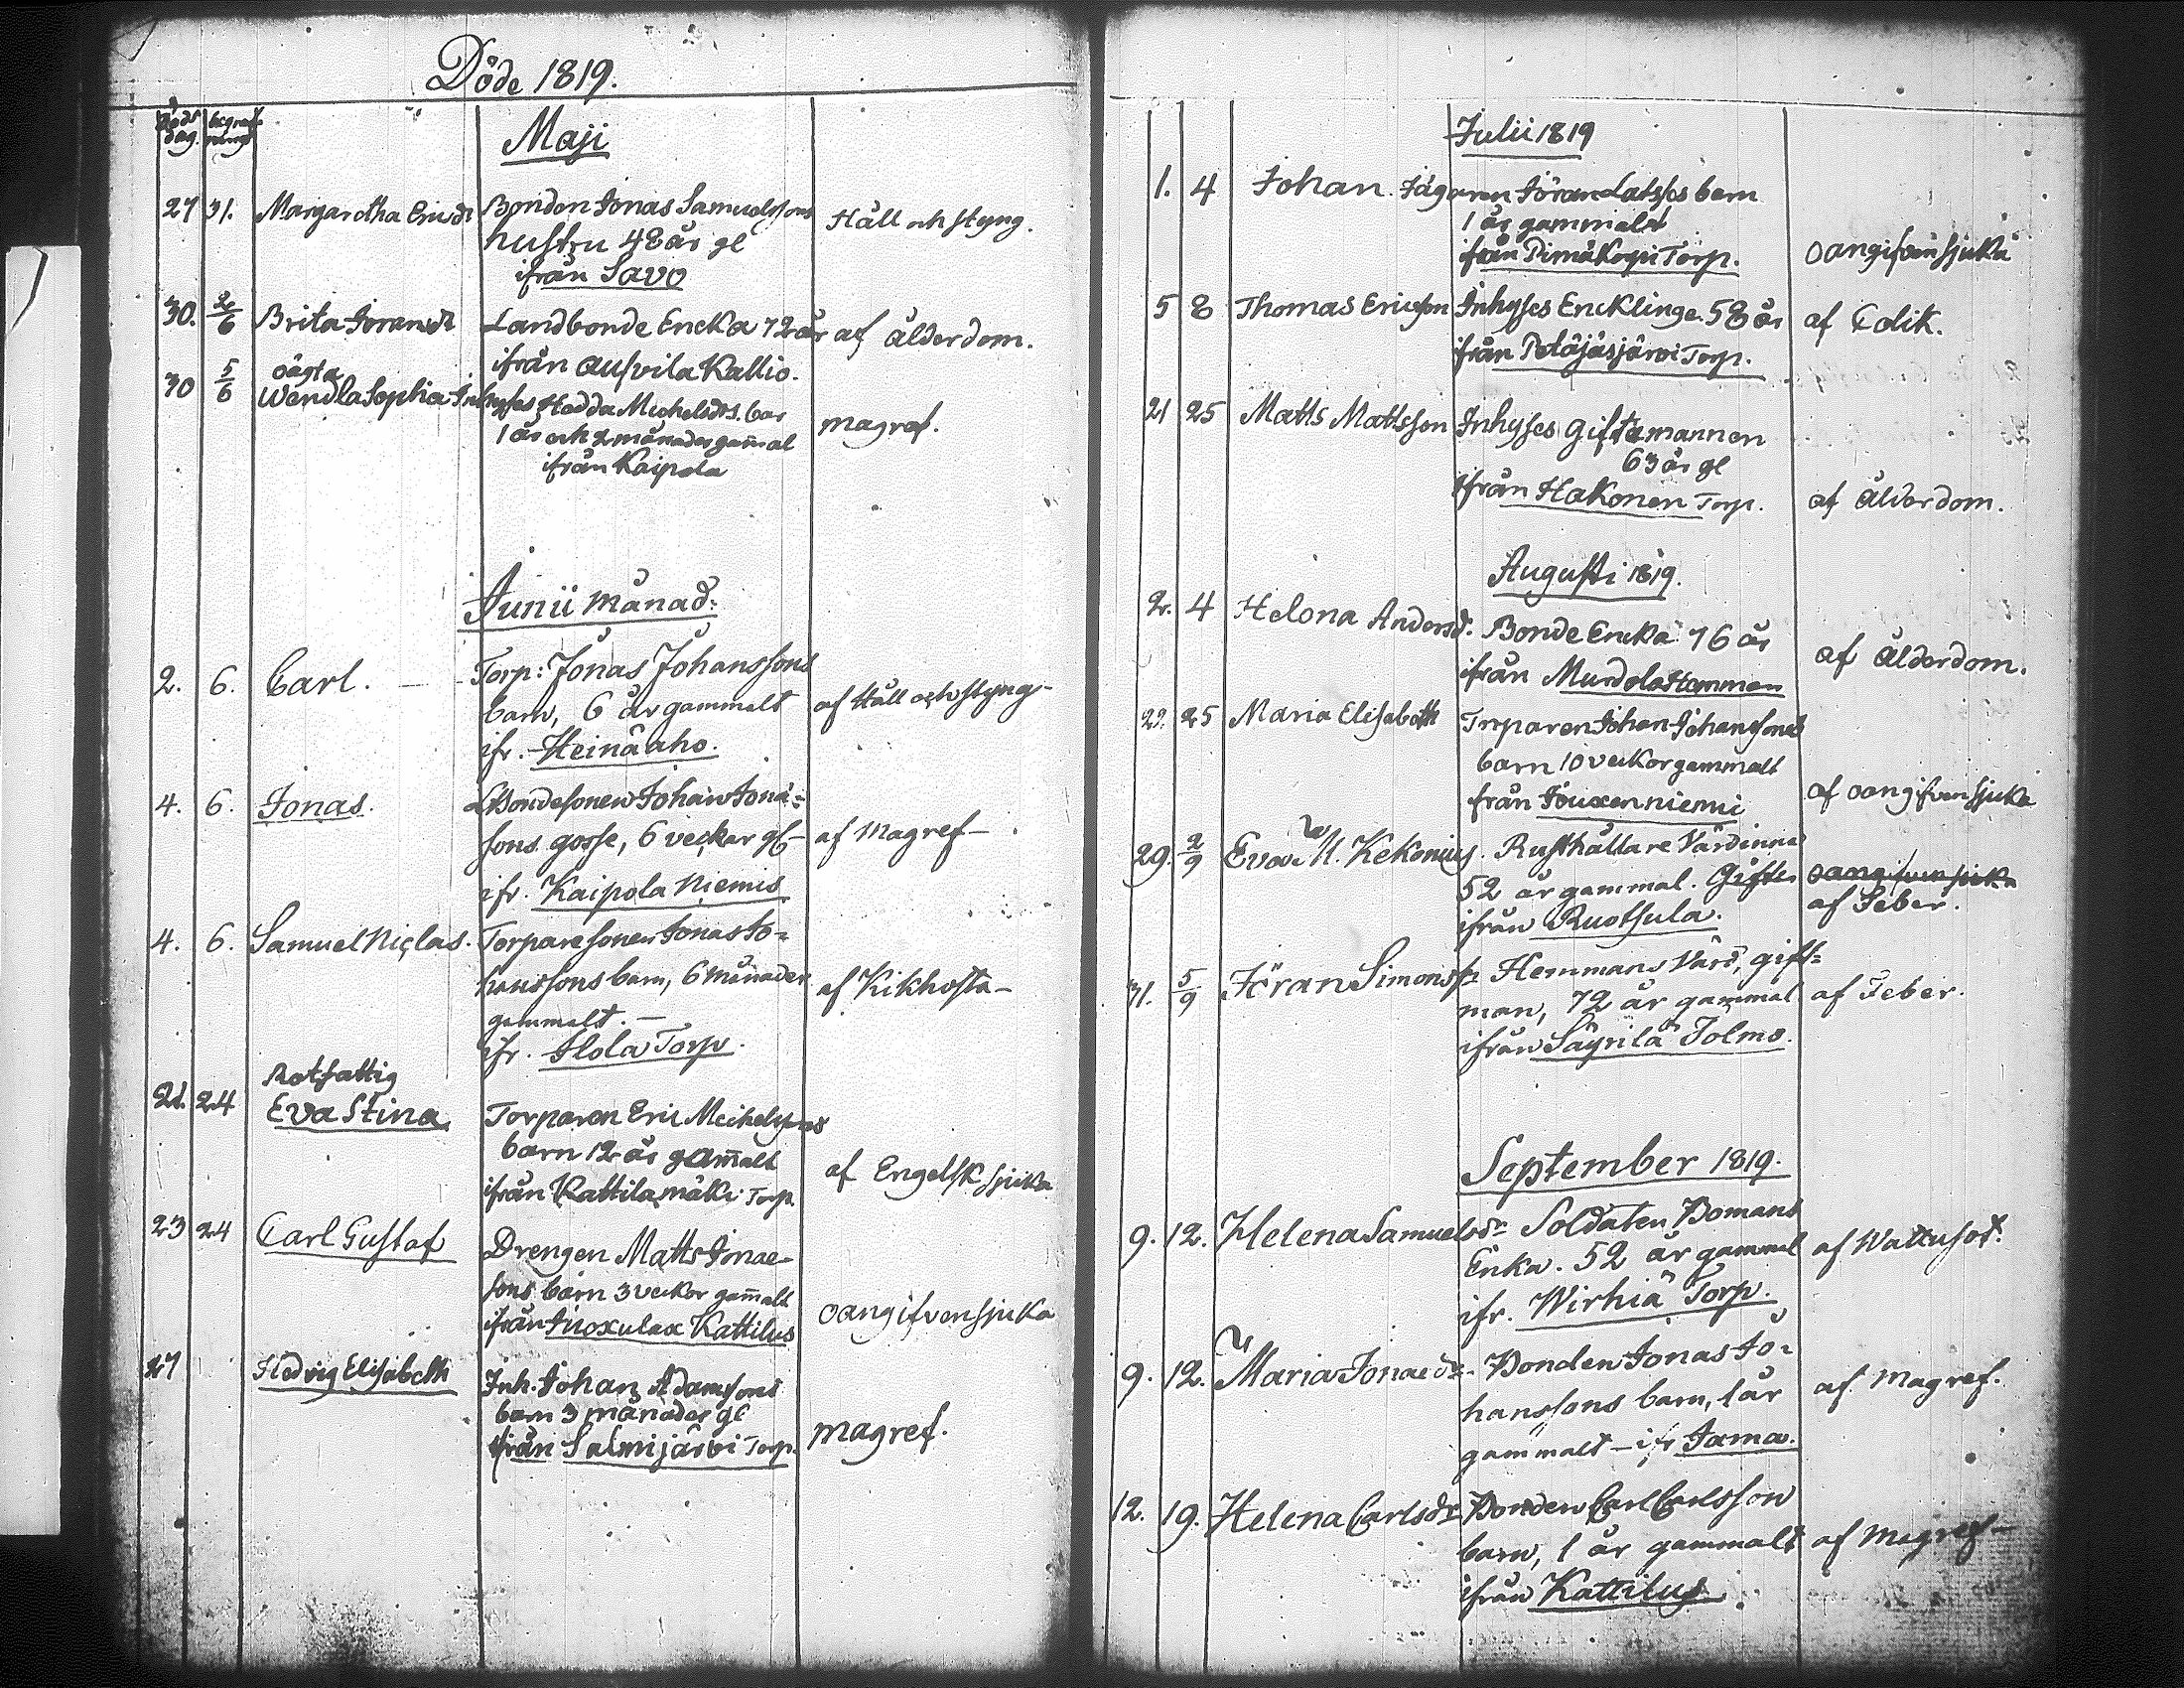 Döde 1819.
Döds dag. begraf-
nings
Maji
27 31. Margaretha Ericsdr Bonden Jonas Samuelssons Håll och styng.
hustru 48 år gl
ifrån Savo
30. 2/6 Brita Joransdr Landbonde Encka 72 år af ålderdom.
ifrån Ausvila Kallio.
oägta
30 5/6 Wendla Sophia Inhyses Hedda Michelsdrs. bar magref.
1 år och 2 månader gam̄al
ifrån Kaipola
Junii månad:
2. 6. Carl. Torp: Jonas Johanssons
barn, 6 år gammalt af Håll och styng-
ifr. Heinäaho.
4. 6. Jonas. Bondesonen Johan Jona=
sons gosse, 6 veckor gl- af Magref-
ifr. Kaipola Niemis
4. 6. Samuel Niclas. Torparesonen Jonas Jo=
hanssons barn, 6 månader af Kikhosta-
gammalt.-
ifr. Ilola Torp.
Rotfattig
21. 24 Eva Stina Torparen Eric Meihelssons
barn 12 år gam̄alt af Engelsk sjuka
ifrån Kattilamäki Torp.
23 24 Carl Gustaf Drengen Matts Jonae-
sons barn 3 veckor gam̄alt oangifven sjuka
ifrån Kattilus
27 Hedvig Elisabeth Inh. Johan Adamsons
barn 3 månader gl magref.
ifrån Salmijärvi Torp.
Julii 1819
1. 4 Johan. Jägaren Jöran barn
1 år gammalt
ifrån Torp. oangifven sjuka
5 8 Thomas Ericsson Inhyses Encklinge 58 år af Colik.
ifrån Petäjäsjärvi Torp.
21 25 Matts Mattsson Inhyses giftamannen
63 år gl
ifrån Hakonen Torp. af ålderdom.
Augusti 1819.
2. 4 Helena Andersd. Bonde Encka 76 år af ålderdom.
ifrån Murdola Hemman
22. 25 Maria Elisabeth Torparen Johan Johanssons
barn 10 veckor gammalt
från Jouxenniemi af oangifven sjuka
29. 2/9 Eva M. Kekonius. Rusthållare Värdinna
52 år gammal. Gifter oangifven sjuka
ifrån Ruotsula. af Feber.
31. 5/9 Jöran Simonss: Hemmans Värd, gift=
man, 72 år gammal af Feber.
ifrån Säyrilä Tolmo.
September 1819.
9. 12. Helena Samuelsdr Soldaten Bomans
Enka. 52 år gammal af Wattusot.
ifr. Wirhiä Torp.
9. 12. Maria Jonaedr. Bonden Jonas Jo=
hanssons barn, 1 år af magref.
gammalt - ifr Jama.
12. 19. Helena Carlsdr Bonden Carl Carlsson
barn, 1 år gammalt af Magref-
ifrån Kattilus.